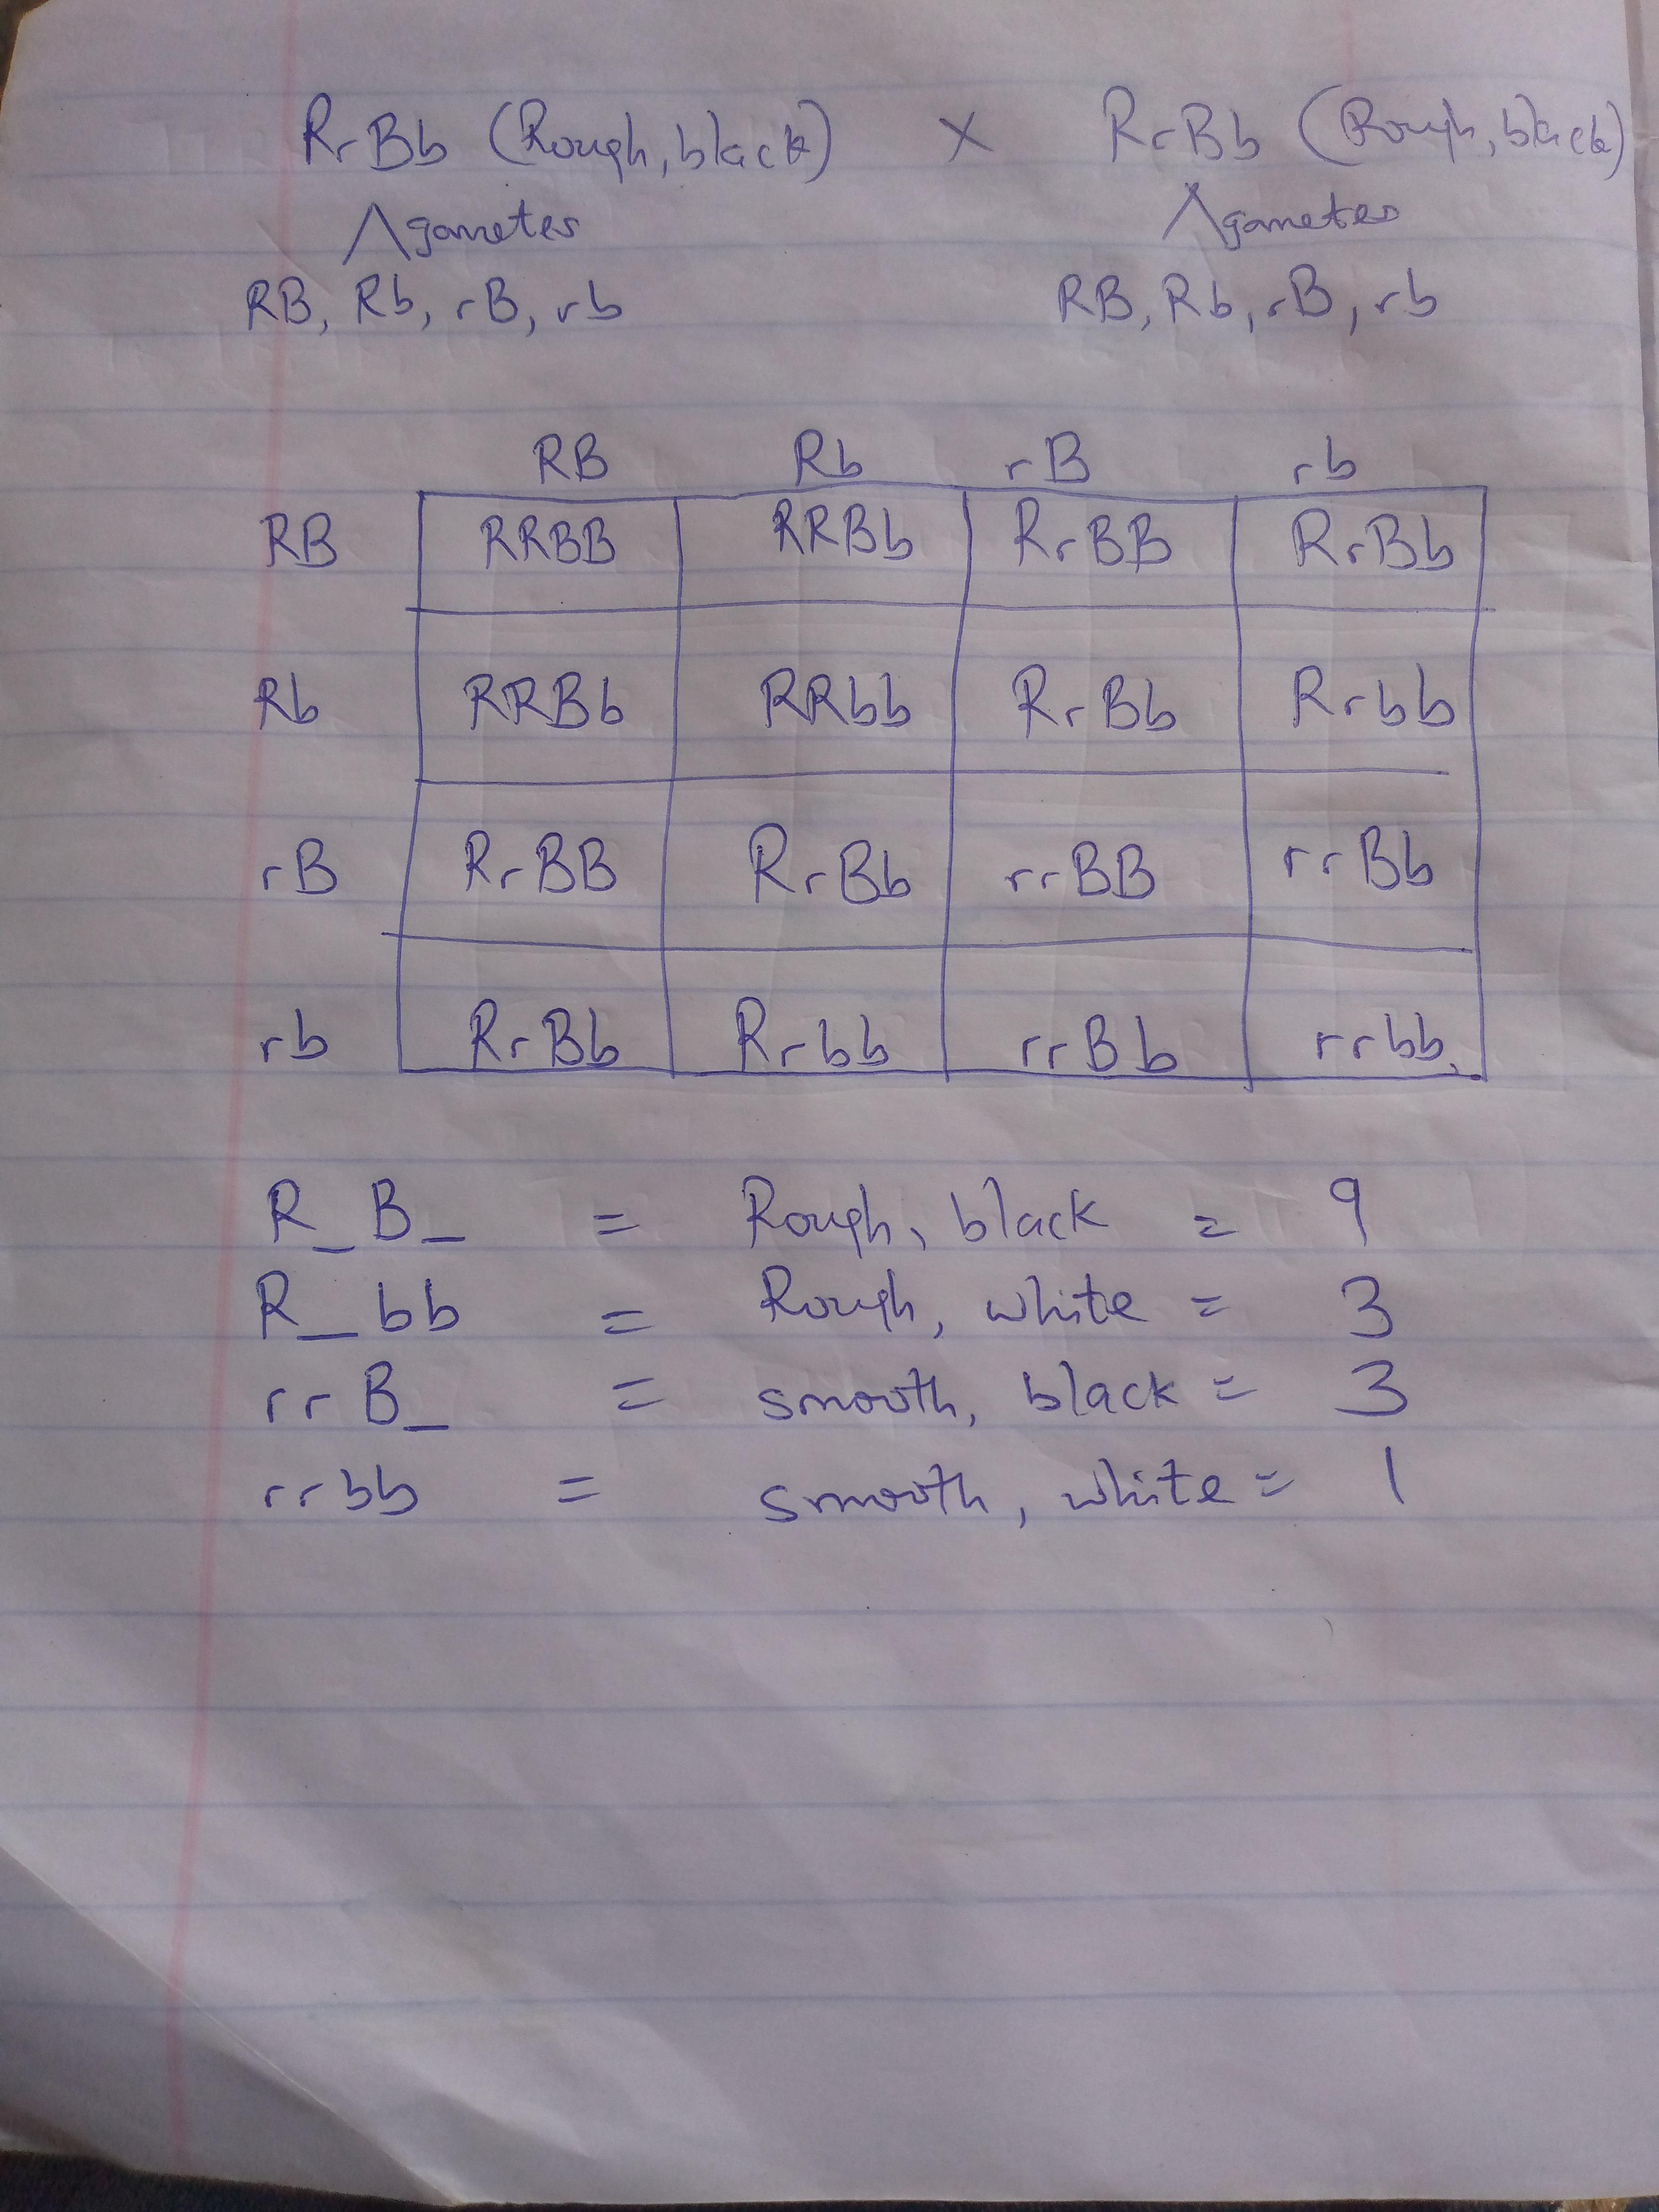 RrBb (Rough, black) X RrBb (Rough, black)
gametes gametes
RB, Rb, rB, rb RB, Rb, rB, rb
RB Rb rB rb
RB RRBB RRBb RrBB RrBb
Rb RRBb RRbb RrBb Rrbb
rB RrBB RrBb rrBB rrBb
rb RrBb Rrbb rrBb rrbb
R_B_ = Rough, black = 9
R_bb = Rough, white = 3
rrB_ = smooth, black = 3
rrbb = smooth, white = 1